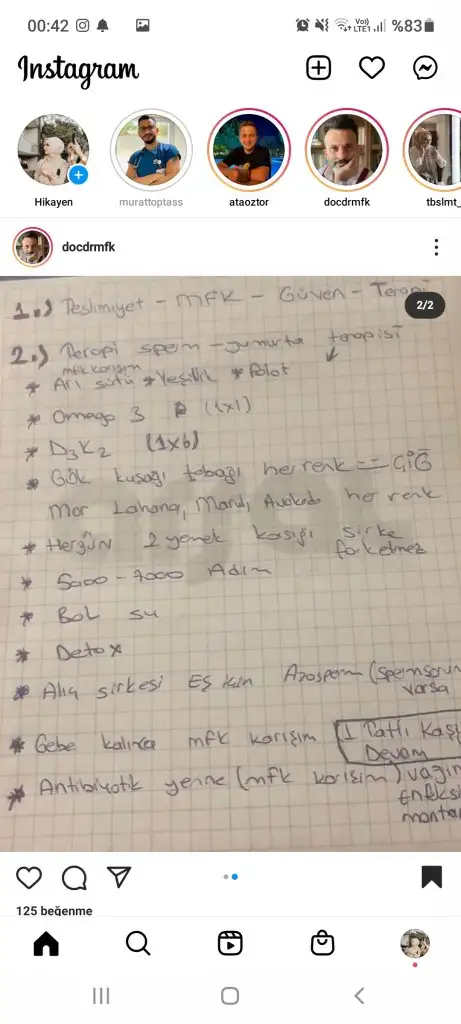 00:42
%83
Instagram
Hikayen
murattoptass
ataoztor
docdrmfk
tbslmt_
docdrmfk
2/2
1.) Teslimiyet - MFK - Güven - Terapi
2.) Terapi sperm - yumurta terapisi
mfk karışım
* Arı sütü * Yeşillik * Polat
* Omega 3 (1x1)
* D3K2 (1x6)
* Gök kuşağı tabağı her renk = ÇİĞ
Mor Lahana, Marul, Avokado her renk
* Hergün 2 yemek kaşığı sirke
farketmez
* 5000-7000 Adım
* Bol su
* Detox
* Alıç sirkesi Eş için Azosperm (sperm sorun
varsa
* Gebe kalınca mfk karışım 1 Tatlı Kaşı
Devam
* Antibiyotik yerine (mfk karışım) vajin
Enfeksi
mantar
125 beğenme